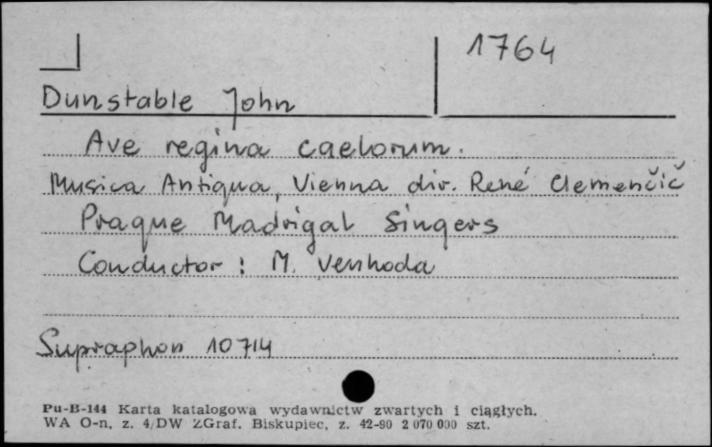 1764
Dunstable John
Ave regina caelorum.
Musica Antiqua, Vienna dir. René Clemenčič
Prague Madrigal Singers
Conductor: M. Venhoda
Supraphon 10714
Pu-B-144 Karta katalogowa wydawnictw zwartych i ciągłych.
WA O-n, z. 4/DW ZGraf. Biskupiec, z. 42-90 2 070 000 szt.